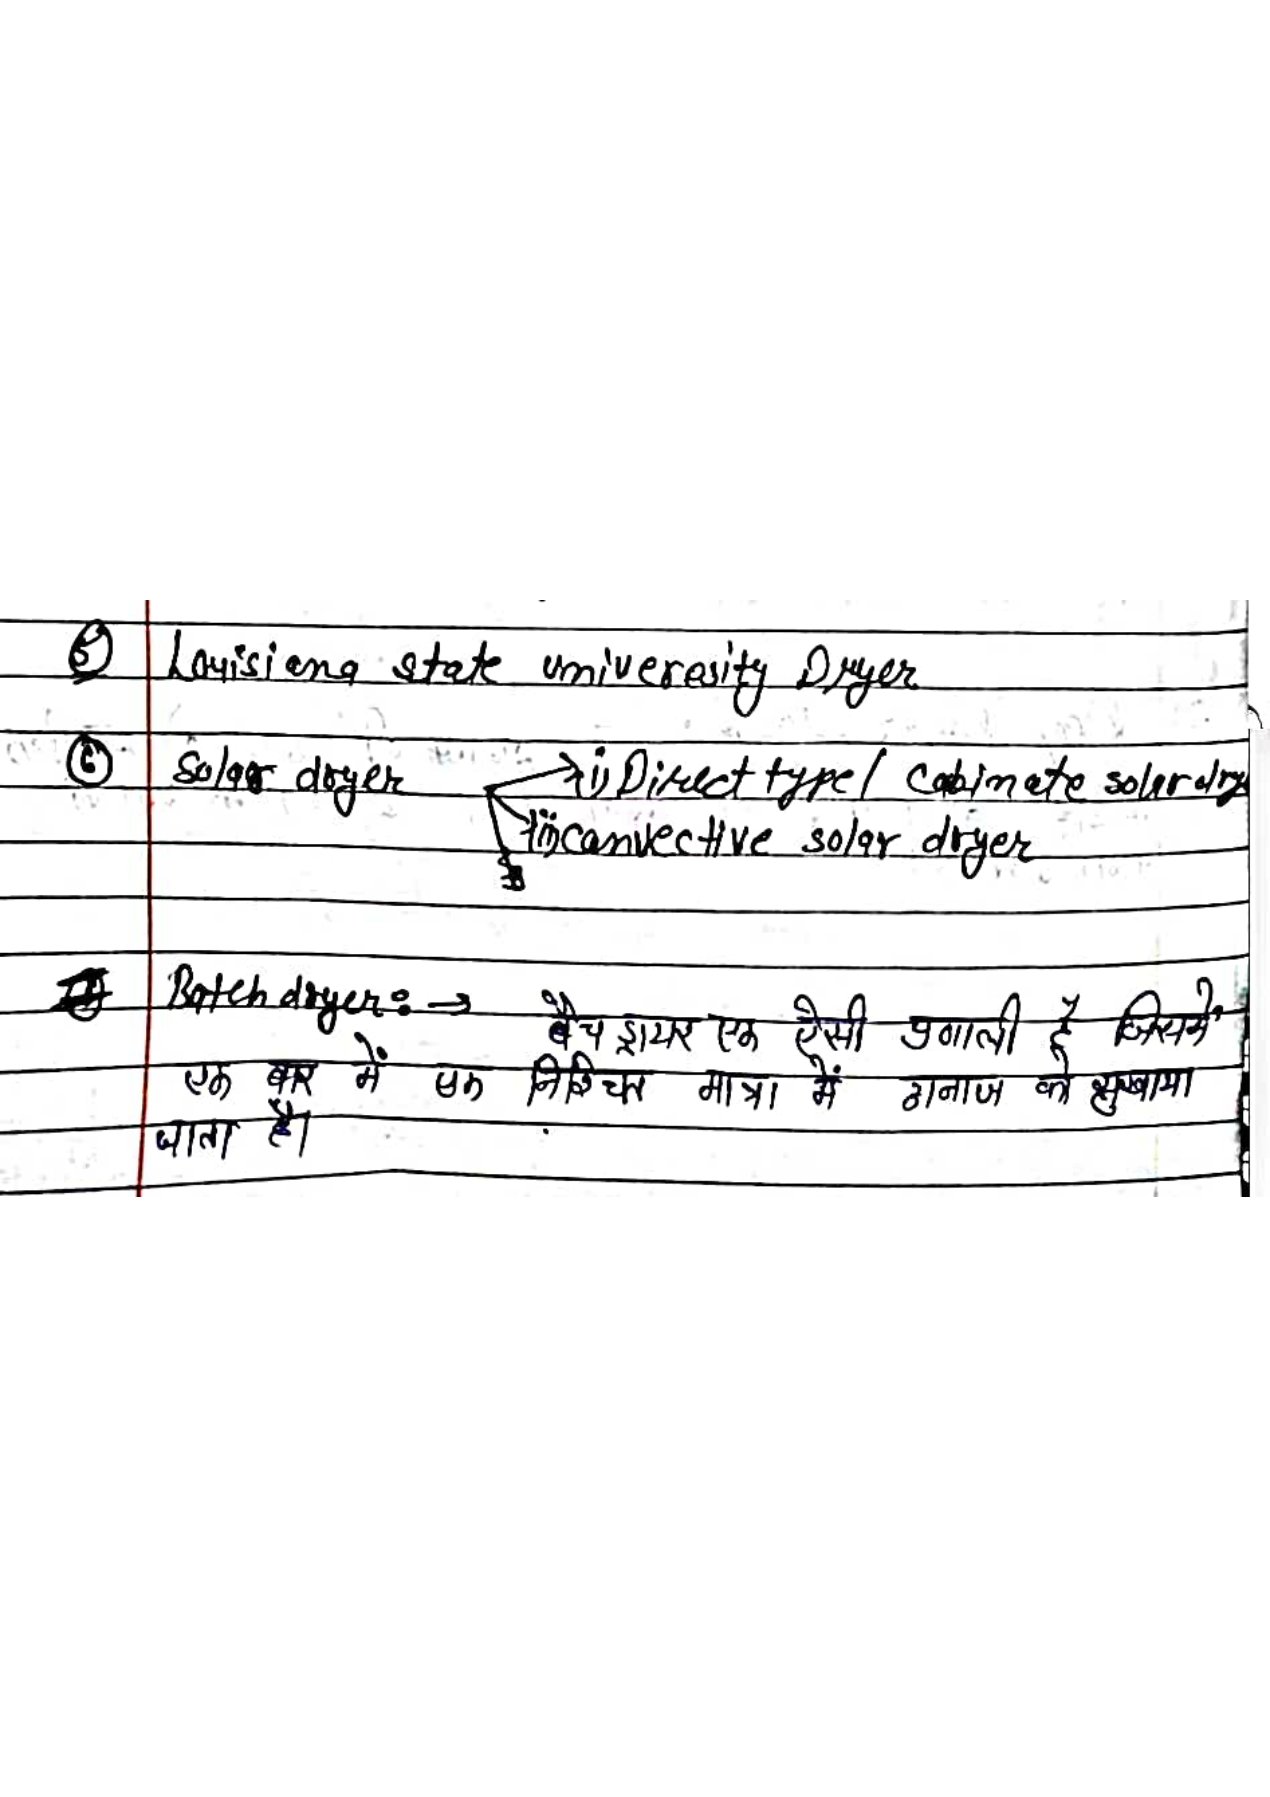 ⑤ Louisiana state univeresity Dryer
⑥ Solar dryer → i) Direct type / cabinate solar dry
ii) canvective solar dryer
Batch dryer:→ बैच ड्रायर एक ऐसी प्रणाली है जिसमें
एक बार में एक निश्चित मात्रा में अनाज को सुखाया
जाता है।